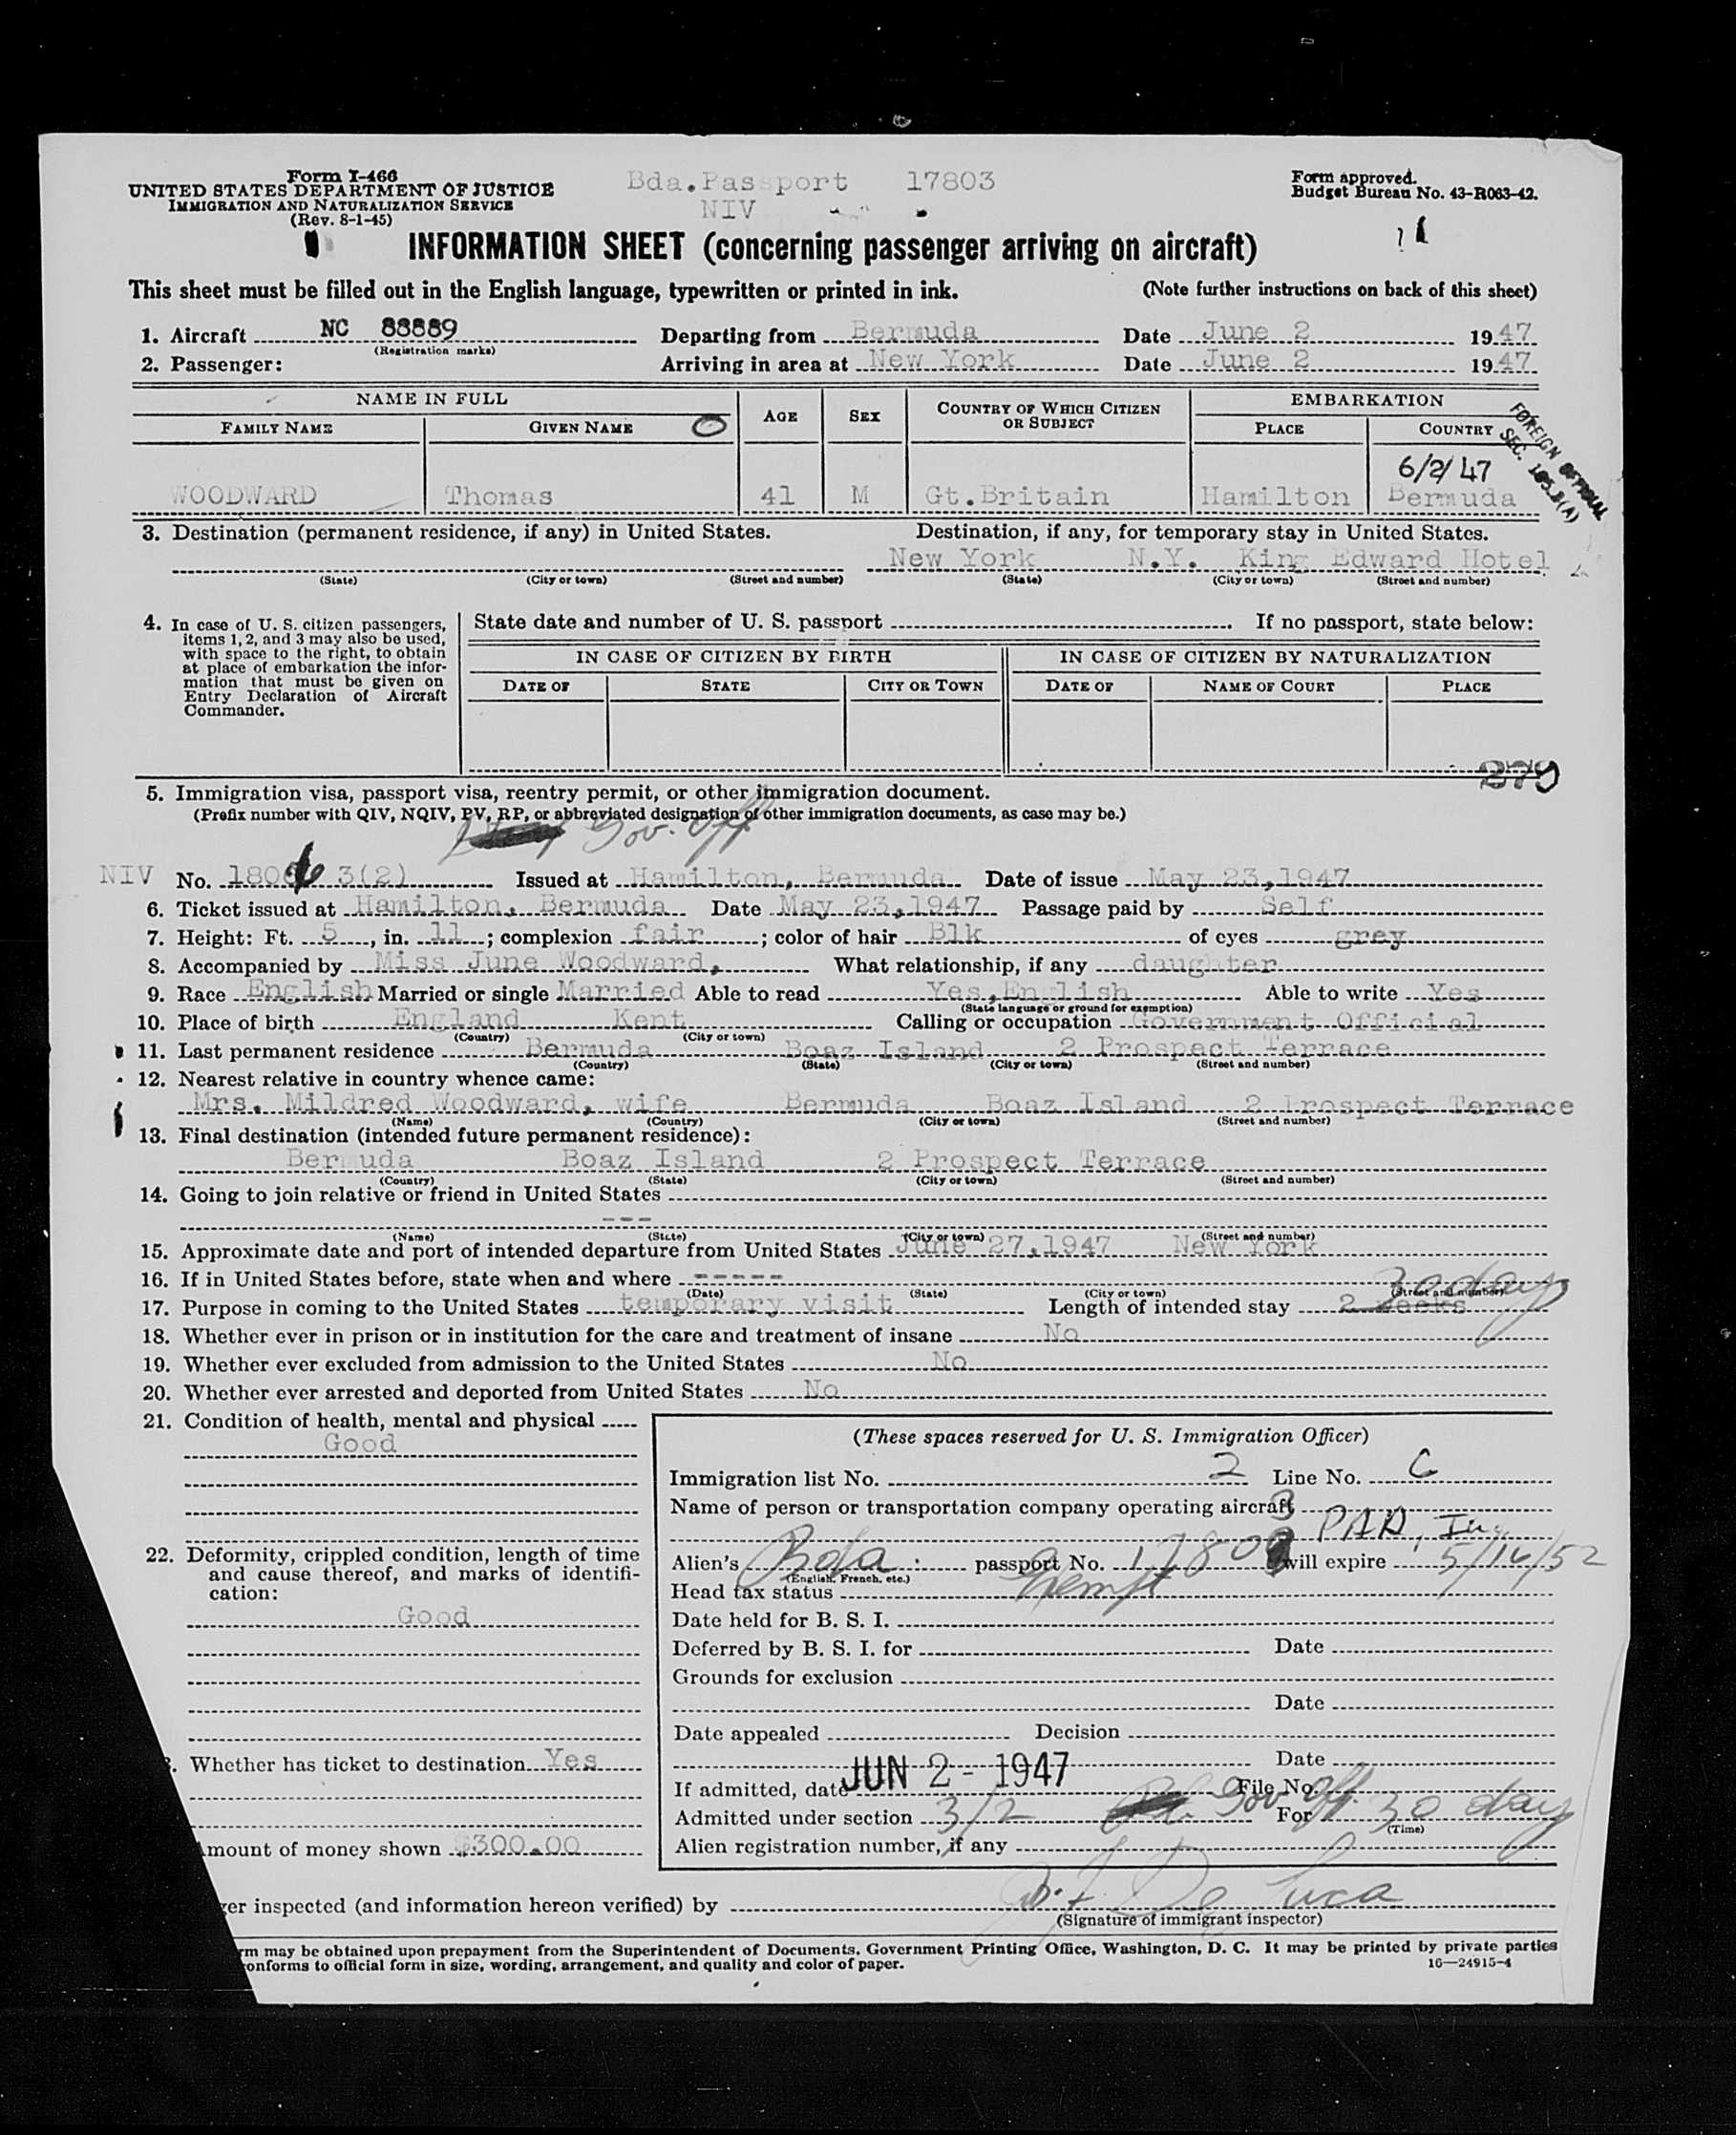 Form I-466
UNITED STATES DEPARTMENT OF JUSTICE
IMMIGRATION AND NATURALIZATION SERVICE
(Rev. 8-1-45)
Bda.Passport 17803
NIV
Form approved.
Budget Bureau No. 43-R063-42.
INFORMATION SHEET (concerning passenger arriving on aircraft)
This sheet must be filled out in the English language, typewritten or printed in ink. (Note further instructions on back of this sheet)
1. Aircraft NC 88889 Departing from Bermuda Date June 2 1947
(Registration marks)
2. Passenger: Arriving in area at New York Date June 2 1947
NAME IN FULL AGE SEX COUNTRY OF WHICH CITIZEN OR SUBJECT EMBARKATION
FAMILY NAME GIVEN NAME PLACE COUNTRY
FOREIGN OFFICIAL
SEC. 195.3(A)
6/2/47
WOODWARD Thomas 41 M Gt.Britain Hamilton Bermuda
3. Destination (permanent residence, if any) in United States. Destination, if any, for temporary stay in United States.
New York N.Y. King Edward Hotel
(State) (City or town) (Street and number) (State) (City or town) (Street and number)
4. In case of U. S. citizen passengers, items 1, 2, and 3 may also be used, with space to the right, to obtain at place of embarkation the information that must be given on Entry Declaration of Aircraft Commander.
State date and number of U. S. passport . If no passport, state below:
IN CASE OF CITIZEN BY BIRTH IN CASE OF CITIZEN BY NATURALIZATION
DATE OF STATE CITY OR TOWN DATE OF NAME OF COURT PLACE
279
5. Immigration visa, passport visa, reentry permit, or other immigration document.
(Prefix number with QIV, NQIV, PV, RP, or abbreviated designation of other immigration documents, as case may be.)
Gov. Off
NIV No. 180 3(2) Issued at Hamilton, Bermuda Date of issue May 23,1947
6. Ticket issued at Hamilton, Bermuda Date May 23,1947 Passage paid by Self
7. Height: Ft. 5, in. 11; complexion fair; color of hair Blk of eyes grey
8. Accompanied by Miss June Woodward, What relationship, if any daughter
9. Race English Married or single Married Able to read Yes,English Able to write Yes
(State language or ground for exemption)
10. Place of birth England Kent Calling or occupation Government Official
(Country) (City or town)
11. Last permanent residence Bermuda Boaz Island 2 Prospect Terrace
(Country) (State) (City or town) (Street and number)
12. Nearest relative in country whence came:
Mrs. Mildred Woodward, wife Bermuda Boaz Island 2 Prospect Terrace
(Name) (Country) (City or town) (Street and number)
13. Final destination (intended future permanent residence):
Bermuda Boaz Island 2 Prospect Terrace
(Country) (State) (City or town) (Street and number)
14. Going to join relative or friend in United States
---
(Name) (State) (City or town) (Street and number)
15. Approximate date and port of intended departure from United States June 27,1947 New York
16. If in United States before, state when and where -----
(Date) (State) (City or town) (Street and number)
30 days
17. Purpose in coming to the United States temporary visit Length of intended stay 2 weeks
18. Whether ever in prison or in institution for the care and treatment of insane No
19. Whether ever excluded from admission to the United States No
20. Whether ever arrested and deported from United States No
21. Condition of health, mental and physical
Good
22. Deformity, crippled condition, length of time and cause thereof, and marks of identification:
Good
. Whether has ticket to destination Yes
mount of money shown $300.00
(These spaces reserved for U. S. Immigration Officer)
Immigration list No. 2 Line No. 6
Name of person or transportation company operating aircraft
PAA, Inc
Alien's Bda. passport No. 17803 will expire 5/16/52
(English, French, etc.)
Head tax status Exempt
Date held for B. S. I.
Deferred by B. S. I. for Date
Grounds for exclusion
Date
Date appealed Decision
Date
If admitted, date JUN 2 - 1947 File No.
Admitted under section 3/2 Gov Off. For 30 days
(Time)
Alien registration number, if any
ger inspected (and information hereon verified) by De Luca
(Signature of immigrant inspector)
rm may be obtained upon prepayment from the Superintendent of Documents, Government Printing Office, Washington, D. C. It may be printed by private parties
onforms to official form in size, wording, arrangement, and quality and color of paper. 16—24915-4